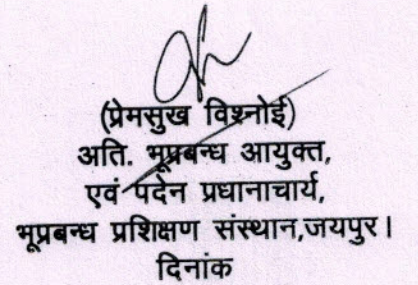 (प्रेमसुख विश्नोई)
अति. भूप्रबन्ध आयुक्त,
एवं पदेन प्रधानाचार्य,
भूप्रबन्ध प्रशिक्षण संस्थान,जयपुर।
दिनांक